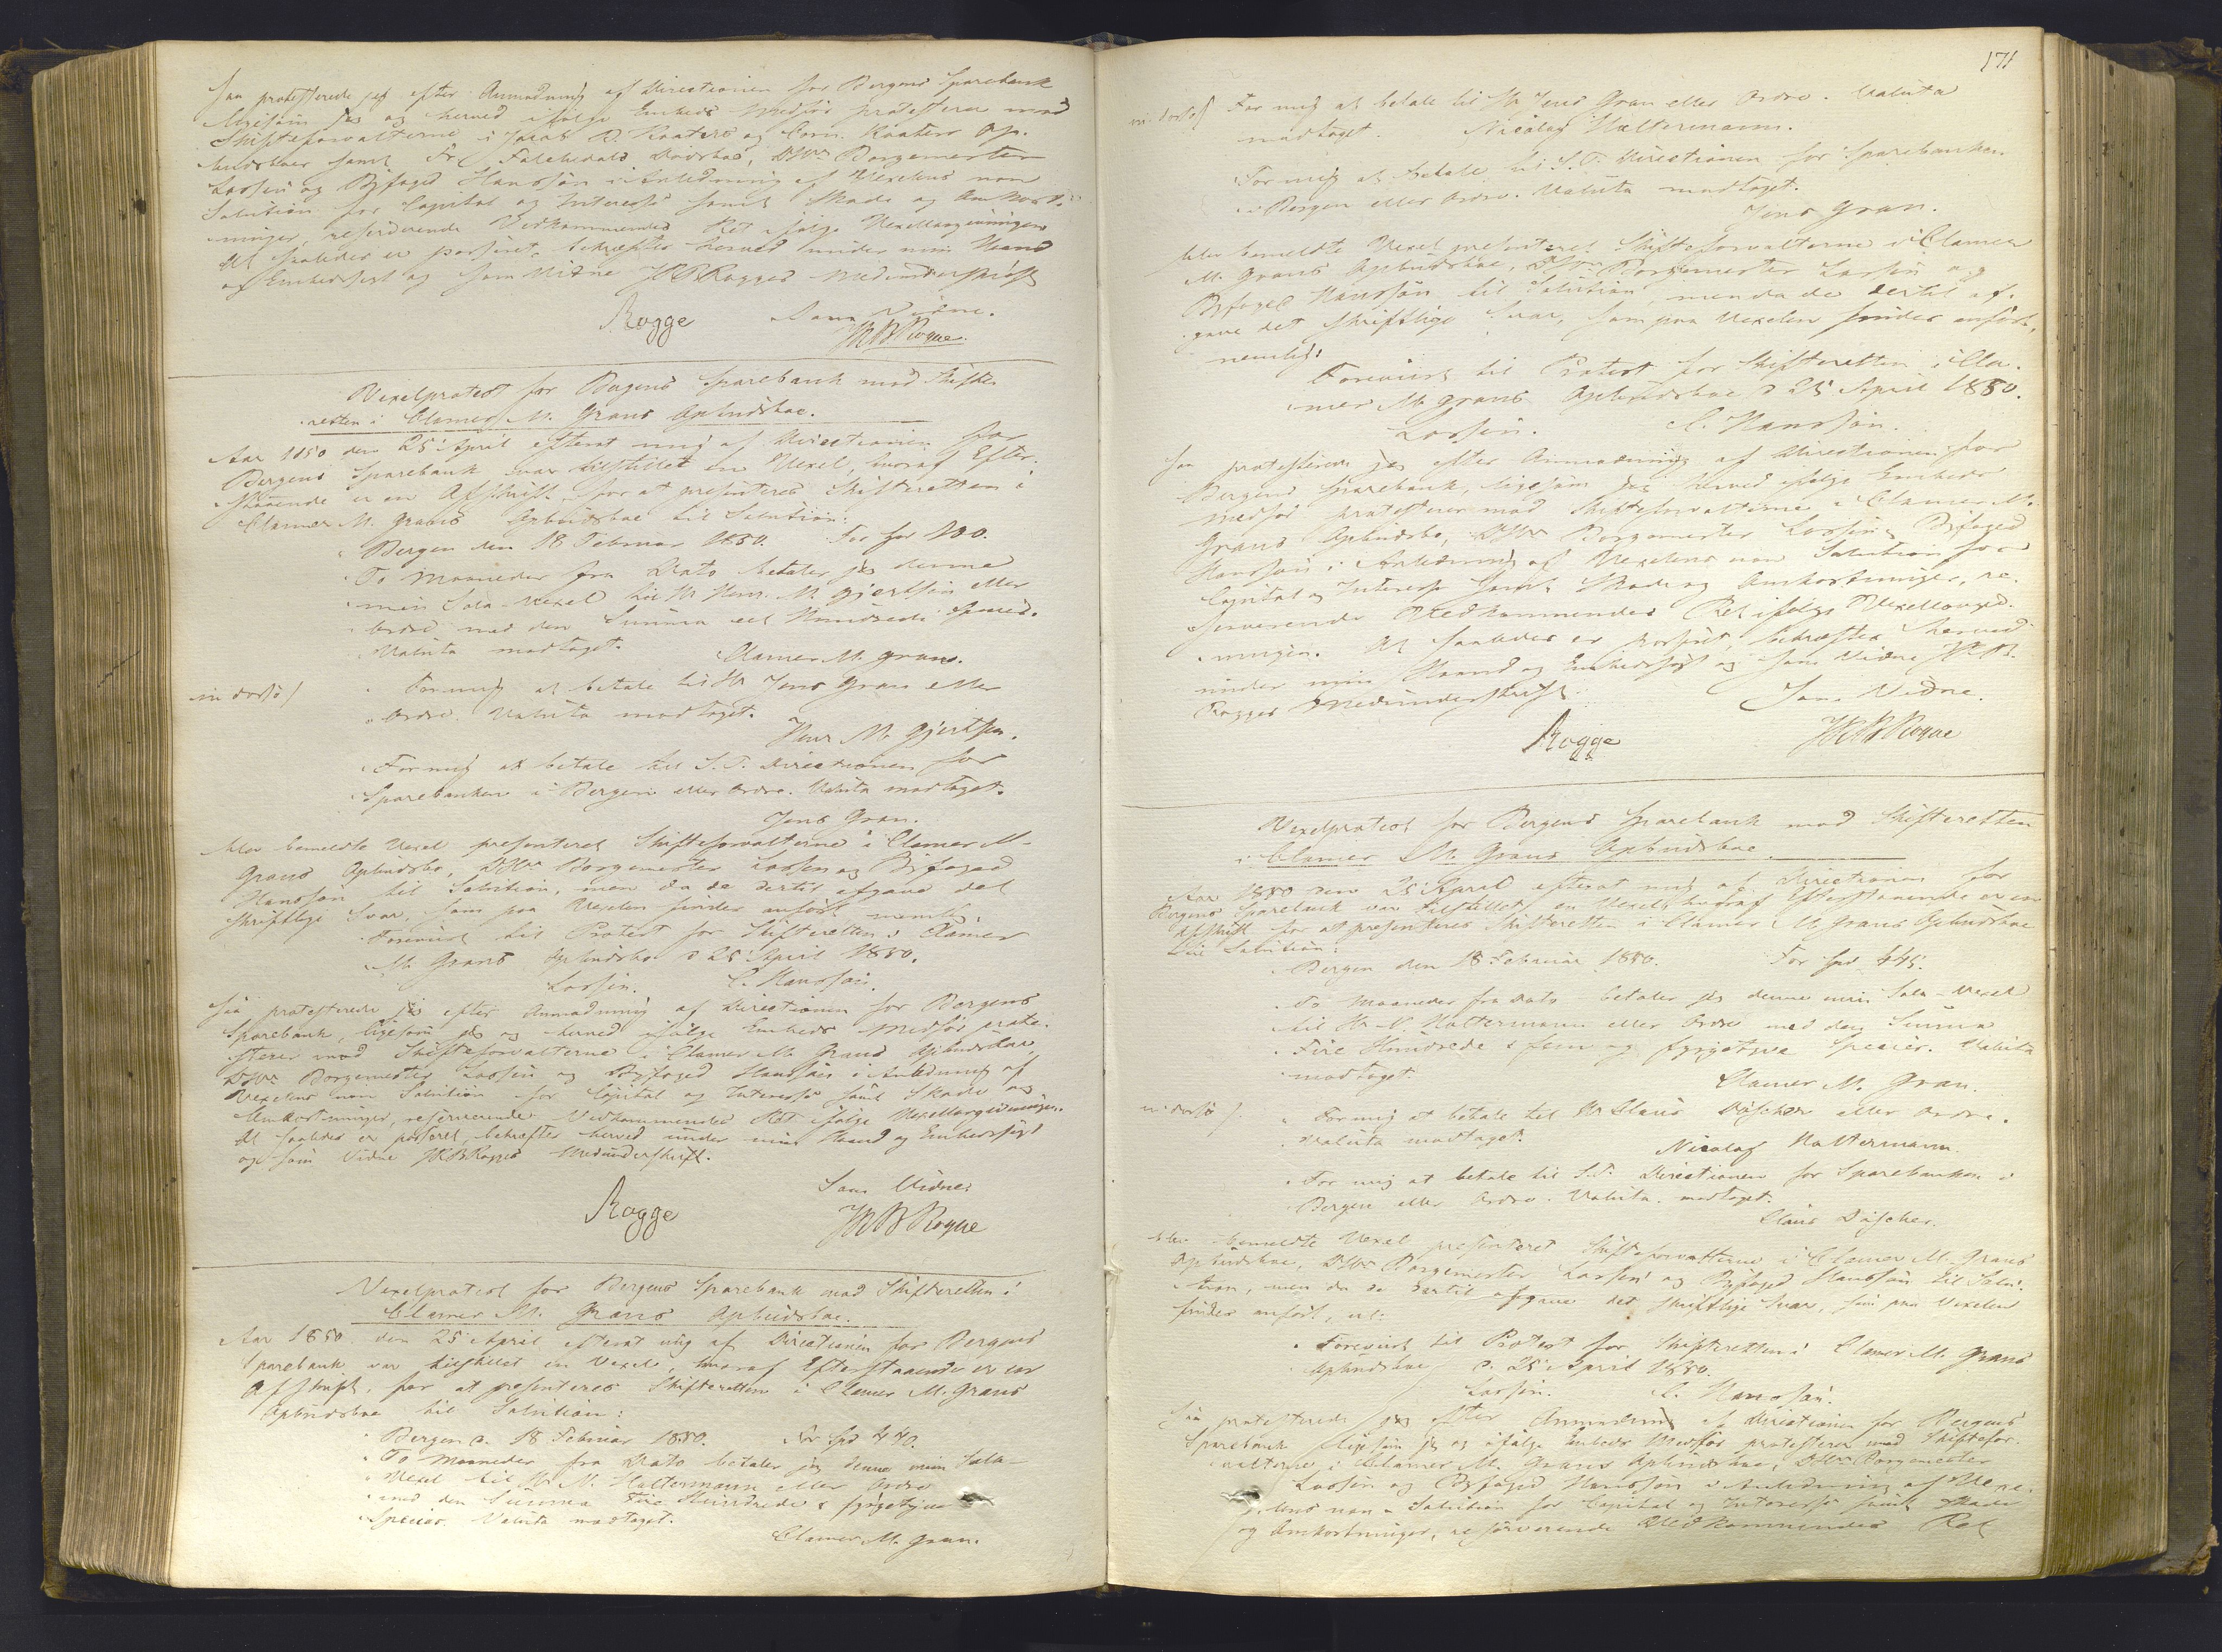 saa protesterede jeg efter Anmodning af Directionen for Bergens Sparebank
ligesom jeg og herved ifølge Embeds Medfør protesterer mod
Skifteforvalterne i Jakob D. Kaaters og Corn. Kaaters Op-
budsboer samt Fr. Dødsbo, DHrr. Borgemester
Lassen og Byfoged Hanssøn i Anledning af Vexelens non
Solution for Capital og Interesse samt Skade og Omkost-
ninger, reserverende Vedkommendes Ret ifølge Vexellovgivningen
At saaledes er passeret, bekræftes herved under min Haand
og Embedssegl og som Vidne HRBRogges Medunderskrift
Rogge Som Vidne.
HRBRogge.
Vexelprotest for Bergens Sparebank mod Skifte-
retten i Clamer M. Grans Opbudsboe.
Aar 1850 den 25 April efterat mig af Directionen for
Bergens Sparebank var tilstillet en Vexel, hvoraf Efter-
staaende er en Afskrift, for at presenteres Skifteretten i
Clamer M. Grans Opbudsboe til Solution:
Bergen den 18 Februar 1850. For Spd 100.
To Maaneder fra Dato betaler jeg denne
min Sola-Vexel til Hr Henr. M. Gjertsen eller
Ordre med den Summa eet Hundrede Specid.
Valuta modtaget.
Clamer M. Gran.
in dorso/ For mig at betale til Hr Jens Gran eller
Ordre. Valuta modtaget.
Henr M. Gjertsen.
For mig at betale til S.T. Directionen for
Sparebanken i Bergen eller Ordre. Valuta modtaget.
Jens Gran.
blev bemeldte Vexel presenteret Skifteforvalterne i Clamer M.
Grans Opbudsbo, DHrr Borgemester Lassen og Byfoged
Hanssøn til Solution, men da de dertil afgave det
skriftlige Svar, som paa Vexelen findes anført nemlig:
Foreviist til Protest for Skifteretten i Clamer
M. Grans Opbudsbo d 25 April 1850.
Lassen. C. Hanssøn.
saa protesterede jeg efter Anmodning af Directionen for Bergens
Sparebank, ligesom jeg og herved ifølge Embeds Medfør prote-
sterer mod Skifteforvalterne i Clamer M. Grans Opbudsboe,
DHrr Borgemester Lassen og Byfoged Hanssøn i Anledning af
Vexelens non Solution for Capital og Interesse samt Skade og
Omkostninger, reserverende Vedkommendes Ret ifølge Vexellovgivningen.
At saaledes er passeret, bekræftes herved under min Haand og Embedssegl
og som Vidne HRBRogges Medunderskrift.
Som Vidne:
Rogge HRBRogge
Vexelprotest for Bergens Sparebank mod Skifteretten i
Clamer M. Grans Opbudsboe.
Aar 1850 den 25 April efterat mig af Directionen for Bergens
Sparebank var tilstillet en Vexel, hvoraf Efterstaaende er en
Afskrift, for at presenteres Skifteretten i Clamer M. Grans
Opbudsboe til Solution:
Bergen d. 18 Februar 1850. For Spd 440.
To Maaneder fra Dato betaler jeg denne min Sola-
Vexel til Hr N. Haltermann eller Ordre
med den Summa Fire Hundrede & fyrgetyve
Specier. Valuta modtaget.
Clamer M. Gran.
171
in dorso/ For mig at betale til Hr Jens Gran eller Ordre. Valuta
modtaget. Nicolay Haltermann.
For mig at betale til S.T. Directionen for Sparebanken
i Bergen eller Ordre. Valuta modtaget.
Jens Gran.
blev bemeldte Vexel presenteret Skifteforvalterne i Clamer
M. Grans Opbudsboe, DHrr Borgemester Lassen og
Byfoged Hanssøn til Solution men da de dertil af-
gave det skriftlige Svar, som paa Vexelen findes anført,
nemlig:
Foreviist til Protest for Skifteretten i Cla-
mer M. Grans Opbudsboe d 25 April 1850.
Lassen. C. Hanssøn.
saa protesterede jeg efter Anmodning af Directionen for
Bergens Sparebank, ligesom jeg herved ifølge Embeds
Medfør protesterer mod Skifteforvalterne i Clamer M.
Grans Opbudsbo, DHrr Borgemester Lassen og Byfoged
Hanssøn i Anledning af Vexelens non Solution for
Capital og Interesse samt Skade og Omkostninger, re-
serverende Vedkommendes Ret ifølge Vexellovgiv-
ningen. At saaledes er passeret, bekræftes herved
under min Haand og Embedssegl og som Vidne HRB
Rogges Medunderskrift.
Som Vidne.
Rogge HRBRogge
Vexelprotest for Bergens Sparebank mod Skifteretten
i Clamer M. Grans Opbudsboe.
Aar 1850 den 25 April efterat mig af Directionen for
Bergens Sparebank var tilstillet en Vexel, hvoraf Efterstaaende er en
Afskrift for at presenteres Skifteretten i Clamer M. Grans Opbudsboe
til Solution:
Bergen den 18 Februar 1850. For Spd 445.
To Maaneder fra Dato betaler jeg denne min Sola-Vexel
til Hr N. Haltermann eller Ordre med den Summa
Fire Hundrede & fem og fyrgetyve Specier. Valuta
modtaget.
Clamer M. Gran.
in dorso/ For mig at betale til Hr Claus Döscher eller Ordre.
Valuta modtaget.
Nicolay Haltermann.
For mig at betale til S.T. Directionen for Sparebanken i
Bergen eller Ordre. Valuta modtaget.
Claus Döscher.
blev bemeldte Vexel presenteret Skifteforvalterne i Clamer M. Grans
Opbudsboe, DHrr Borgemester Lassen og Byfoged Hanssøn til Solu-
tion, men da de dertil afgave det skriftlige Svar, som paa Vexelen
findes anført, nl:
Foreviist til Protest for Skifteretten i Clamer M. Grans
Opbudsboe d. 25 April 1850.
Lassen. C. Hanssøn.
saa protesterede jeg efter Anmodning af Directionen for Bergens
Sparebank ligesom jeg og ifølge Embeds Medfør protesterer mod Skiftefor-
valterne i Clamer M. Grans Opbudsboe, DHrr Borgemester
Lassen og Byfoged Hanssøn i Anledning af Vexe-
lens non Solution for Capital og Interesse samt Skade
og Omkostninger, reserverende Vedkommendes Ret